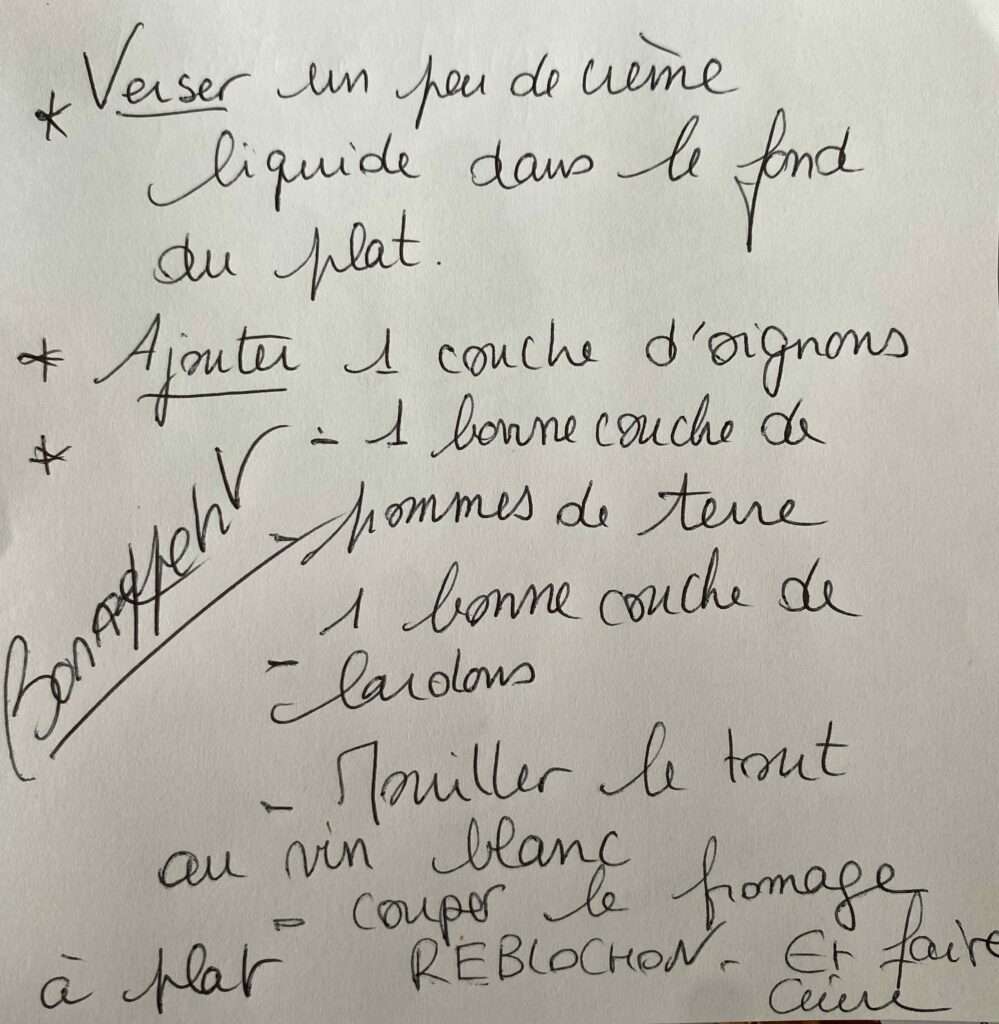 * Verser un peu de crème
liquide dans le fond
du plat.
* Ajouter 1 couche d'oignons
* - 1 bonne couche de
- pommes de terre
1 bonne couche de
- lardons
- Mouiller le tout
au vin blanc
- couper le fromage
à plat REBLOCHON - Et faire
cuire
Bon Appétit